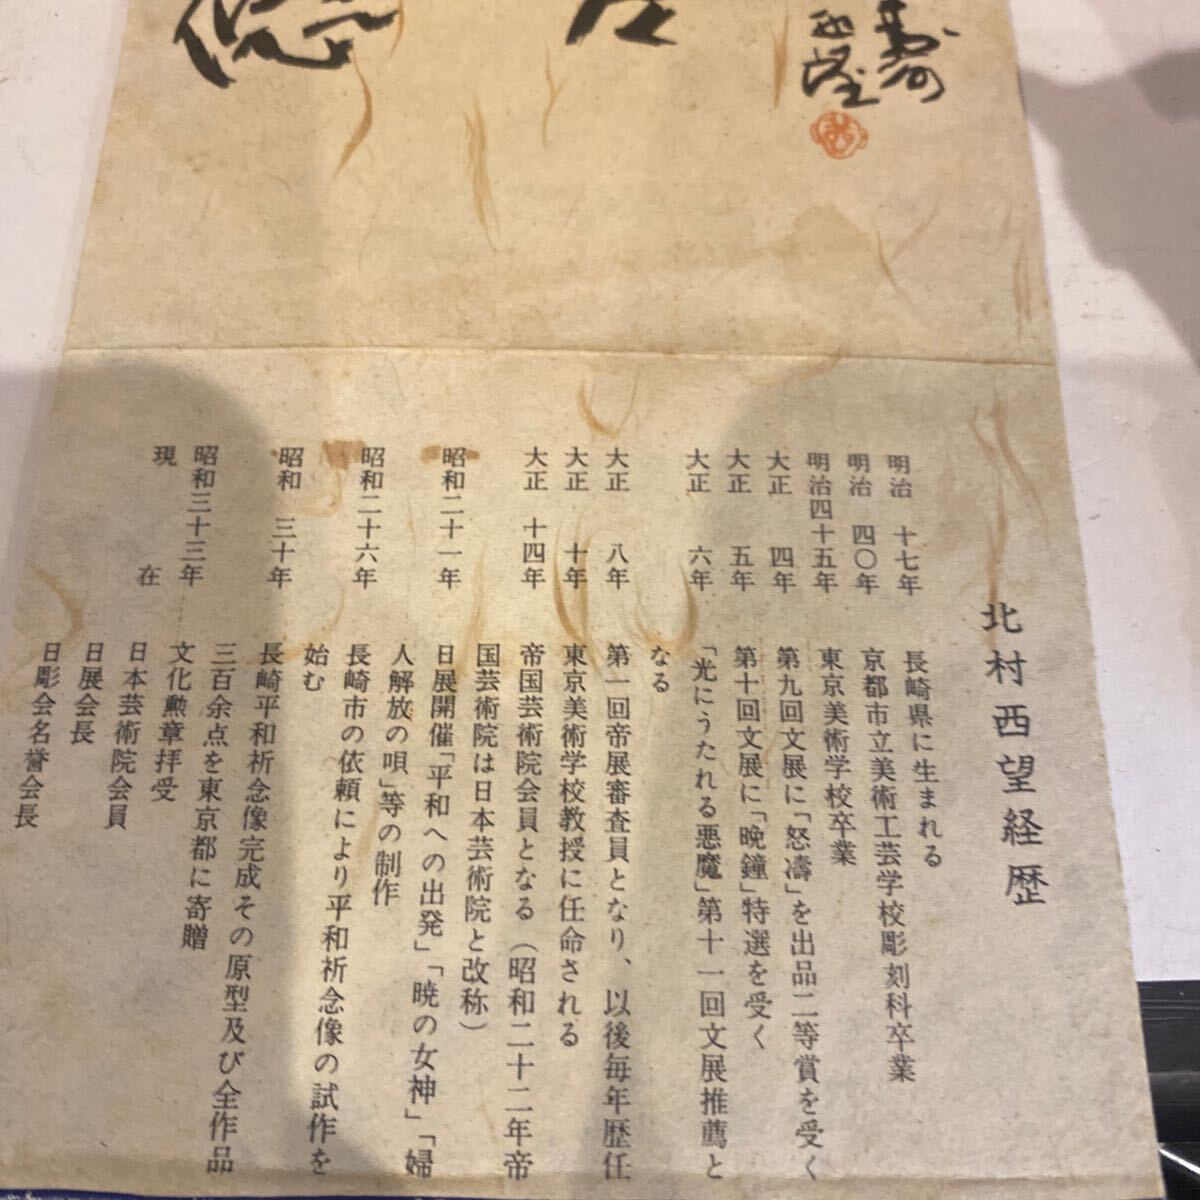 寿
北村西望経歴
明治 十七年 長崎県に生まれる
明治 四〇年 京都市立美術工芸学校彫刻科卒業
明治四十五年 東京美術学校卒業
大正 四年 第九回文展に「怒濤」を出品二等賞を受く
大正 五年 第十回文展に「晩鐘」特選を受く
大正 六年 「光にうたれる悪魔」第十一回文展推薦と
なる
大正 八年 第一回帝展審査員となり、以後毎年歴任
大正 十年 東京美術学校教授に任命される
大正 十四年 帝国芸術院会員となる(昭和二十二年帝
国芸術院は日本芸術院と改称)
昭和二十一年 日展開催「平和への出発」「暁の女神」「婦
人解放の唄」等の制作
昭和二十六年 長崎市の依頼により平和祈念像の試作を
始む
昭和 三十年 長崎平和祈念像完成その原型及び全作品
三百余点を東京都に寄贈
昭和三十三年 文化勲章拝受
現 在 日本芸術院会員
日展会長
日彫会名誉会長